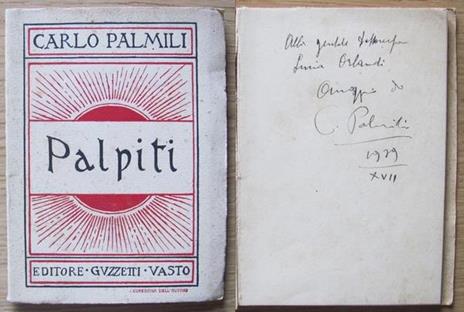 CARLO PALMILI
Palpiti
EDITORE · GUZZETTI · VASTO
Alla gentile
Lucia Orlandi
Omaggio di
C. Palmili
1939
XVII